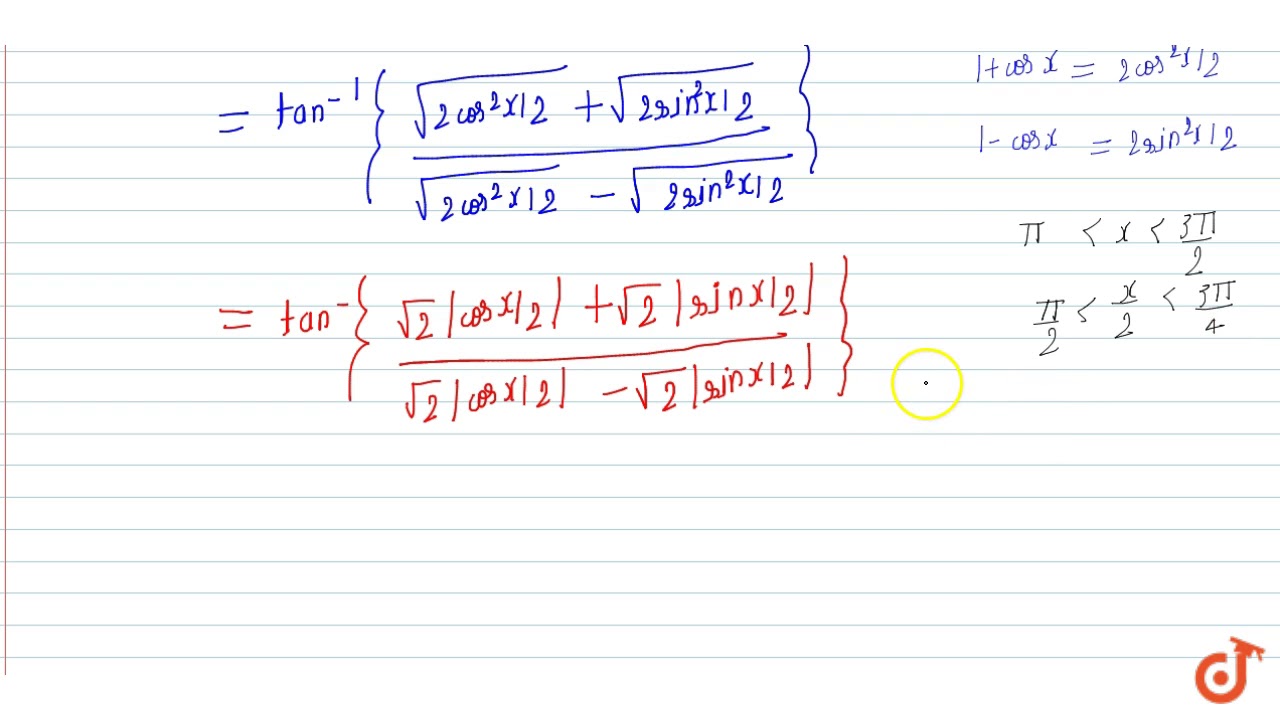 = tan⁻¹ { (√(2cos²x/2) + √(2sin²x/2)) / (√(2cos²x/2) − √(2sin²x/2)) }
1+cosx = 2cos²x/2
1-cosx = 2sin²x/2
π < x < 3π/2
π/2 < x/2 < 3π/4
= tan⁻ { (√2 |cosx/2| + √2 |sinx/2|) / (√2 |cosx/2| − √2 |sinx/2|) }